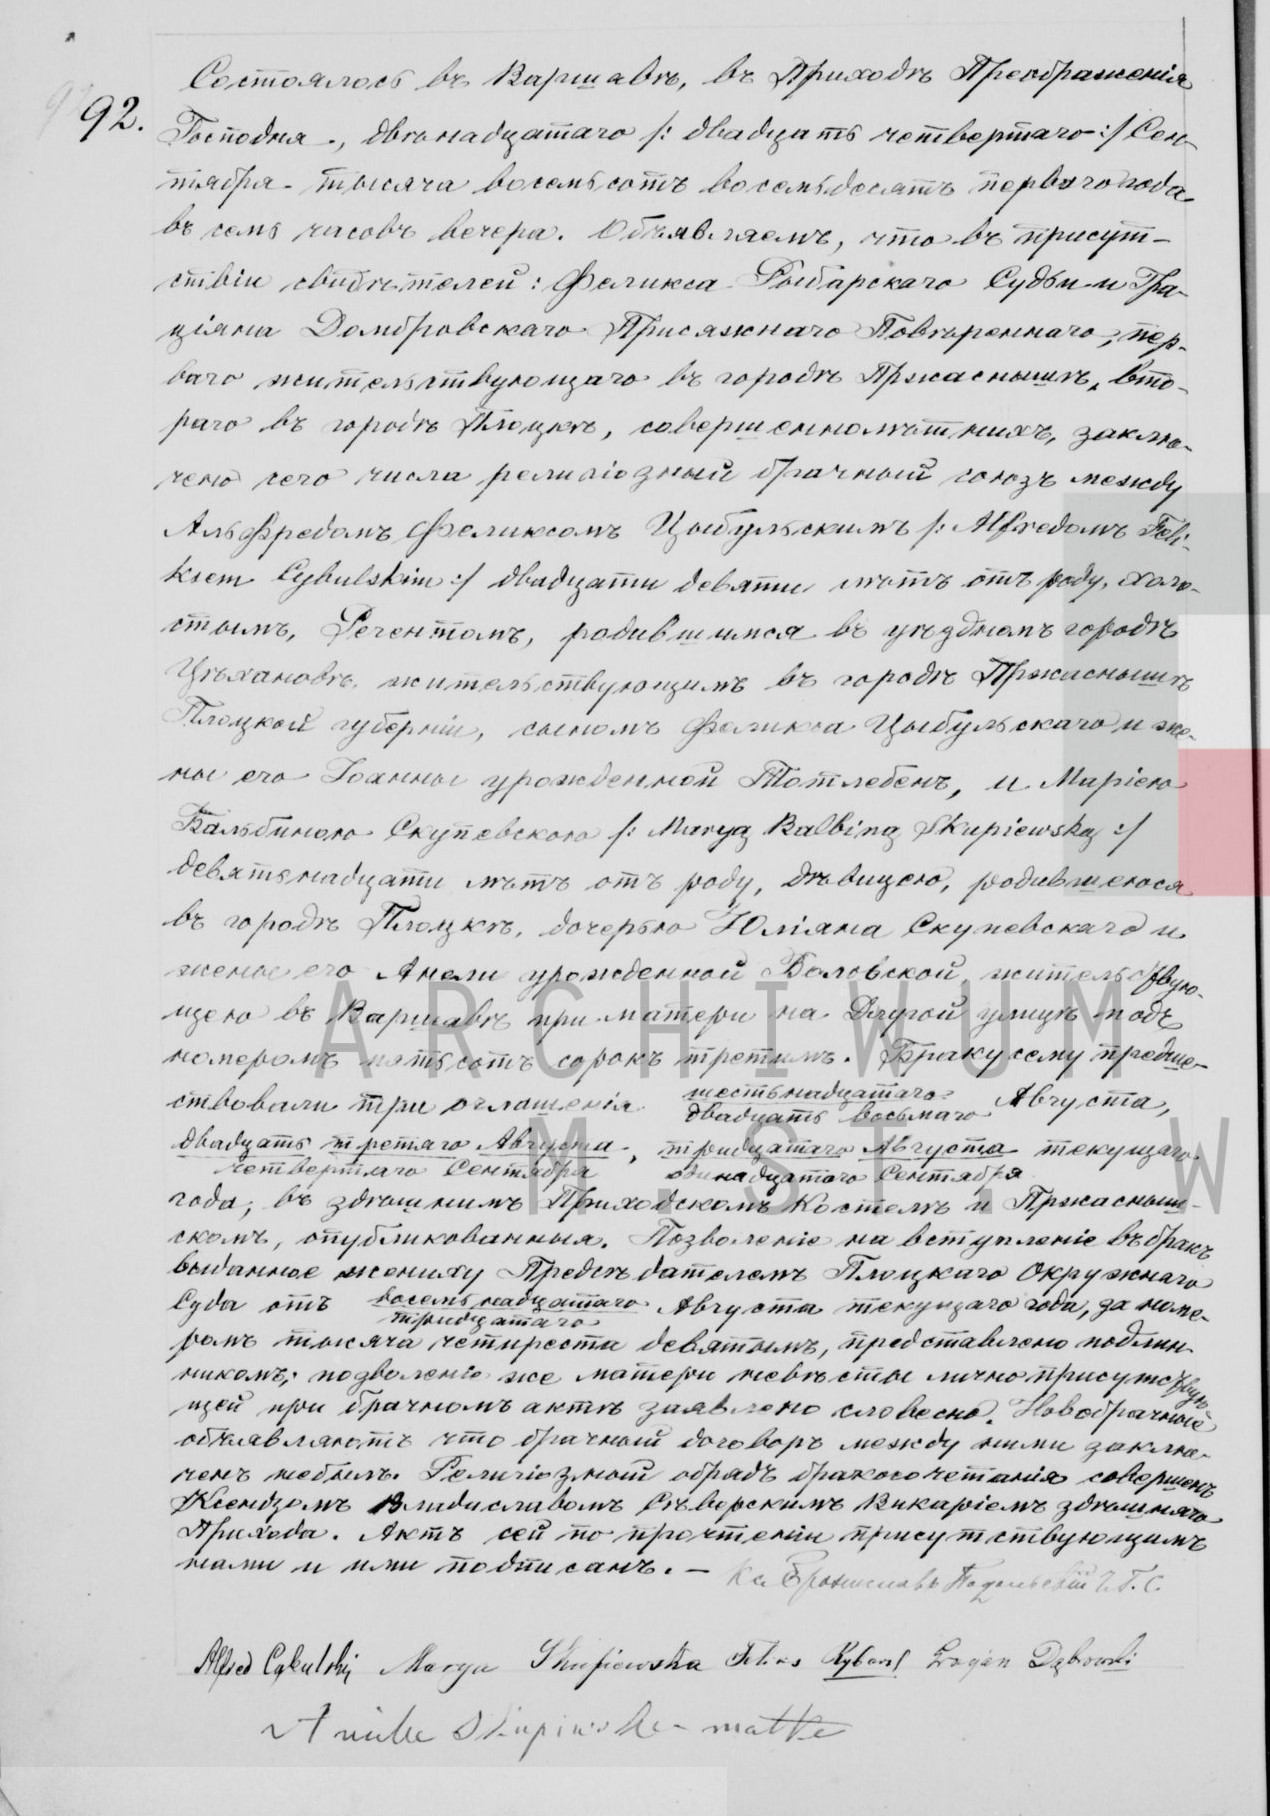 92.
Состоялось въ Варшавѣ, въ Приходѣ Преображенія
Господня, двѣнадцатаго /: двадцать четвертаго :/ Сен-
тября тысяча восемьсотъ восемьдесятъ перваго года
въ семь часовъ вечера. Объявляемъ, что въ присут-
ствіи свидѣтелей: Феликса Рыбарскаго Судьи и Гра-
ціяна Домбровскаго Присяжнаго Повѣреннаго, пер-
ваго жительствующаго въ городѣ Пржаснышѣ, вто-
раго въ городѣ Плоцкѣ, совершеннолѣтнихъ, заклю-
чено сего числа религіозный брачный союзъ между
Альфредомъ Феликсомъ Цыбульскимъ /: Alfredomъ Feli-
ksem Cybulskim :/ двадцати девяти лѣтъ отъ роду, холо-
стымъ, Регентомъ, родившимся въ уѣздномъ городѣ
Цѣхановѣ, жительствующимъ въ городѣ Пржаснышѣ
Плоцкой губерніи, сыномъ Феликса Цыбульскаго и же-
ны его Іоанны урожденной Тотлебенъ, и Маріею
Бальбиною Скупевскою /: Maryą Balbiną Skupiewską :/
девятьнадцати лѣтъ отъ роду, дѣвицею, родившеюся
въ городѣ Плоцкѣ, дочерью Юліяна Скупевскаго и
жены его Анели урожденной Боловской, жительствую-
щею въ Варшавѣ при матери на Длугой улицѣ подъ
номеромъ пятьсотъ сорокъ третимъ. Браку сему предше-
ствовали три оглашенія шестьнадцатаго Августа,
двадцать восьмаго
двадцать третаго Августа, тридцатаго Августа текущаго
четвертаго Сентября одинадцатаго Сентября
года, въ здѣшнимъ Приходскомъ Костелѣ и Пржасныш-
скомъ, опубликованныя. Позволеніе на вступленіе въ бракъ
выданное жениху Предсѣдателемъ Плоцкаго Окружнаго
Суда отъ восемьнадцатаго Августа текущаго года, за номе-
тридцатаго
ромъ тысяча четыреста девятымъ, представлено подлин-
никомъ; позволеніе же матери невѣсты лично присутствую-
щей при брачномъ актѣ заявлено словесно. Новобрачные
объявляютъ что брачный договоръ между ними заклю-
ченъ небылъ. Религіозный обрядъ бракосочетанія совершенъ
Ксендзомъ Владиславомъ Сѣверскимъ Викаріемъ здѣшняго
Прихода. Актъ сей по прочтеніи присутствующимъ
нами и ими подписанъ. –
Кс. Брониславъ
Alfred Cybulski Marya Skupiewska Feliks Rybarski Gracyan Dąbrowski
Aniela Skupiewska – matka
ARCHIWUM
M. ST. W